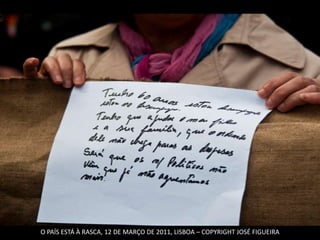 Tenho 60 anos estou desempre
Tenho que ajudar o meu filho
e a sua família, que o ordenado
dele não chega para as despesas
Será que os n/ Políticos não
vêm que já não aguentamos
mais!
O PAÍS ESTÁ À RASCA, 12 DE MARÇO DE 2011, LISBOA – COPYRIGHT JOSÉ FIGUEIRA